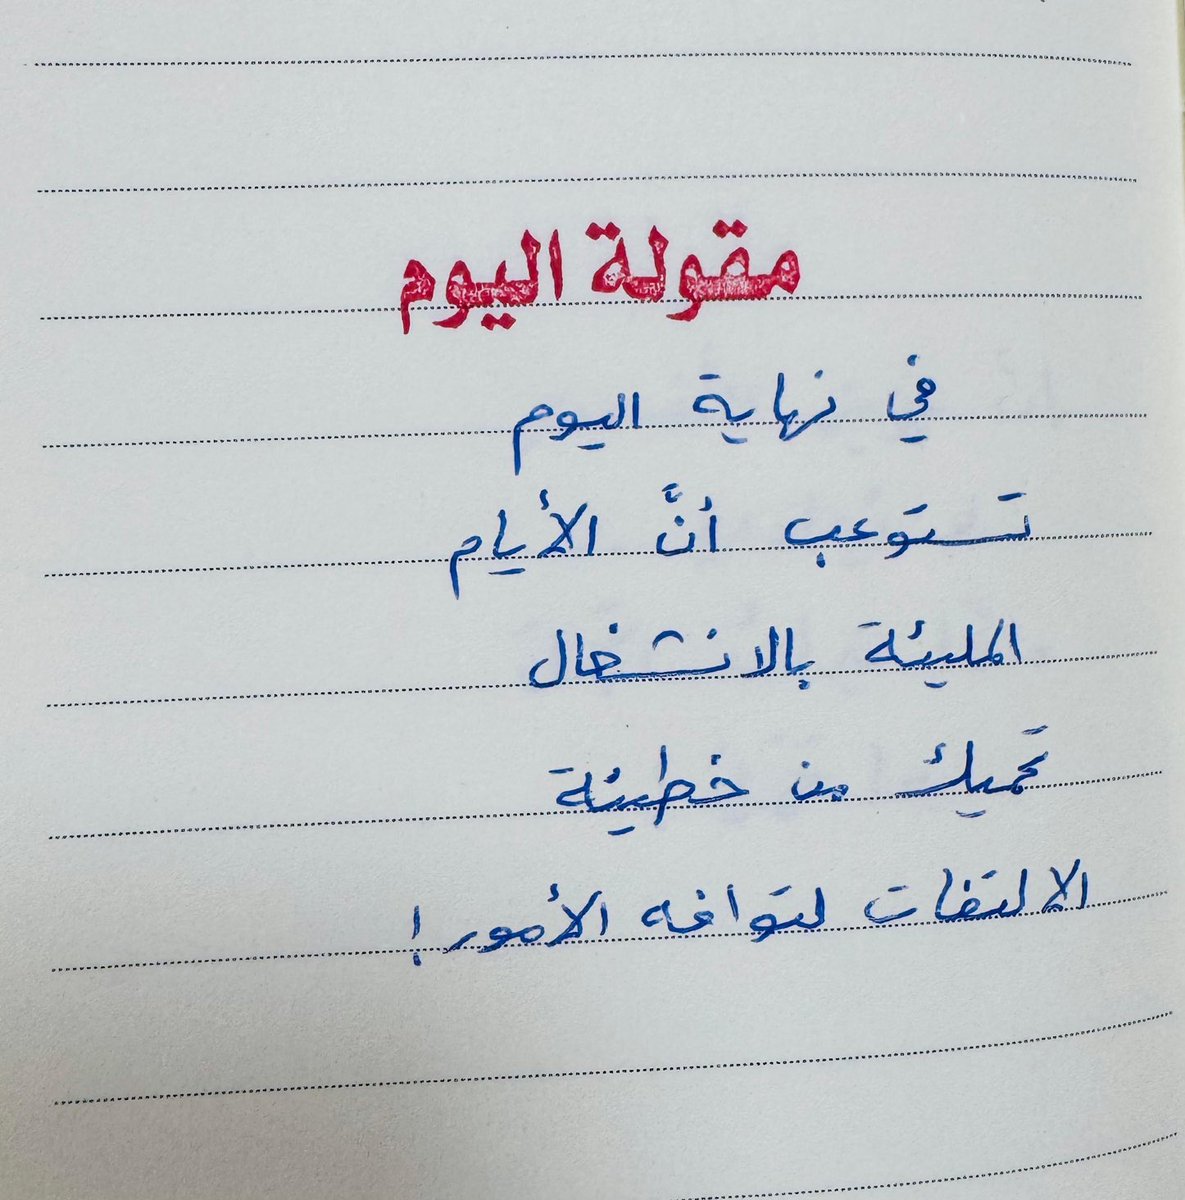 مقولة اليوم
في نهاية اليوم
تستوعب أنَّ الأيام
المليئة بالانشغال
تحميك من خطيئة
الالتفات لتوافه الأمور!